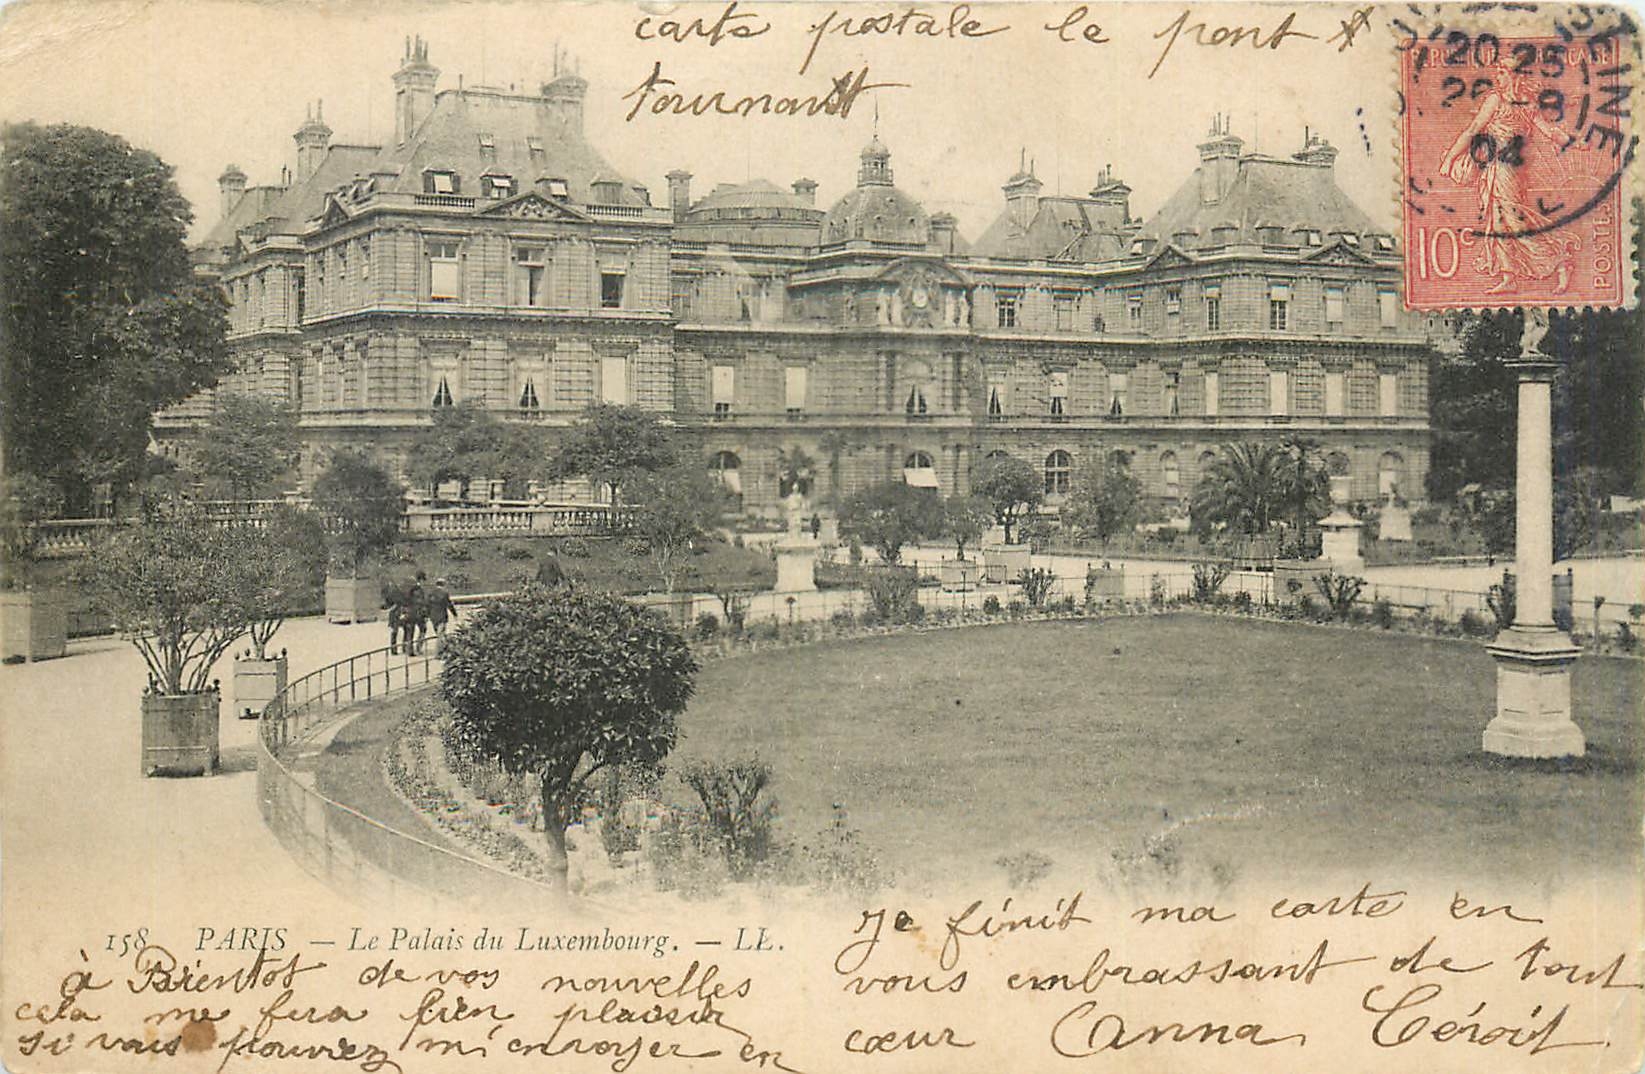 carte postale le pont
tournant
RÉPUBLIQUE FRANÇAISE
10c
POSTES
SEINE
20 25
26 -8
04
158 PARIS — Le Palais du Luxembourg. — LL.
à Bientot de vos nouvelles
cela me fera bien plaisir
si vous pouviez m'envoyer en
Je finit ma carte en
vous embrassant de tout
cœur Anna